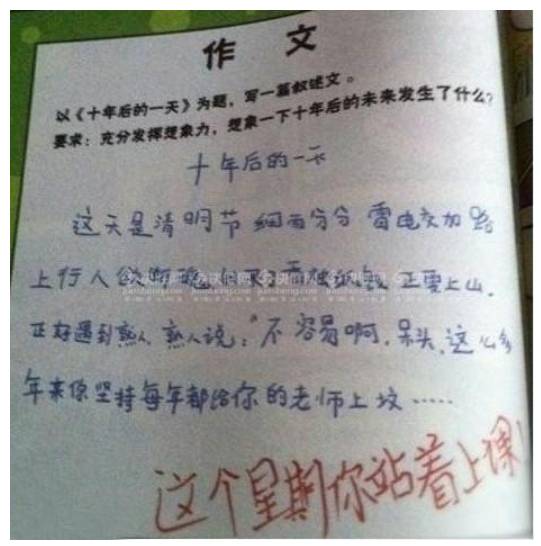 作 文
以《十年后的一天》为题，写一篇叙述文。
要求：充分发挥想象力，想象一下十年后的未来发生了什么？
十年后的一天
这天是清明节 细雨分分 雷电交加 路
上行人 断魂 正要上山.
正好遇到熟人，熟人说："不容易啊，呆头，这么多
年来你坚持每年都给你的老师上坟……
这个星期你站着上课！